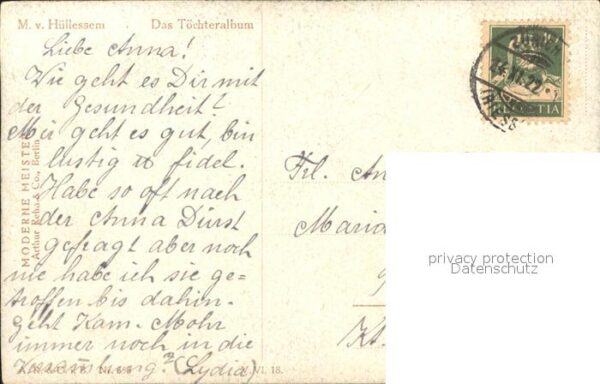 M. v. Hüllessem Das Töchteralbum
Liebe Anna!
Wie geht es Dir mit
der Gesundheit?
Mir geht es gut, bin
lustig u fidel.
Habe so oft nach
der Anna Durst
gefragt aber noch
nie habe ich sie ge-
troffen bis dahin.
Geht Kam. Mohr
immer noch in die
Versammlung? (Lydia)
MODERNE MEISTER
Arthur Rehn & Co., Berlin
VI. 18.
HELVETIA
22
Frl. An
Maria
Kt.
privacy protection
Datenschutz